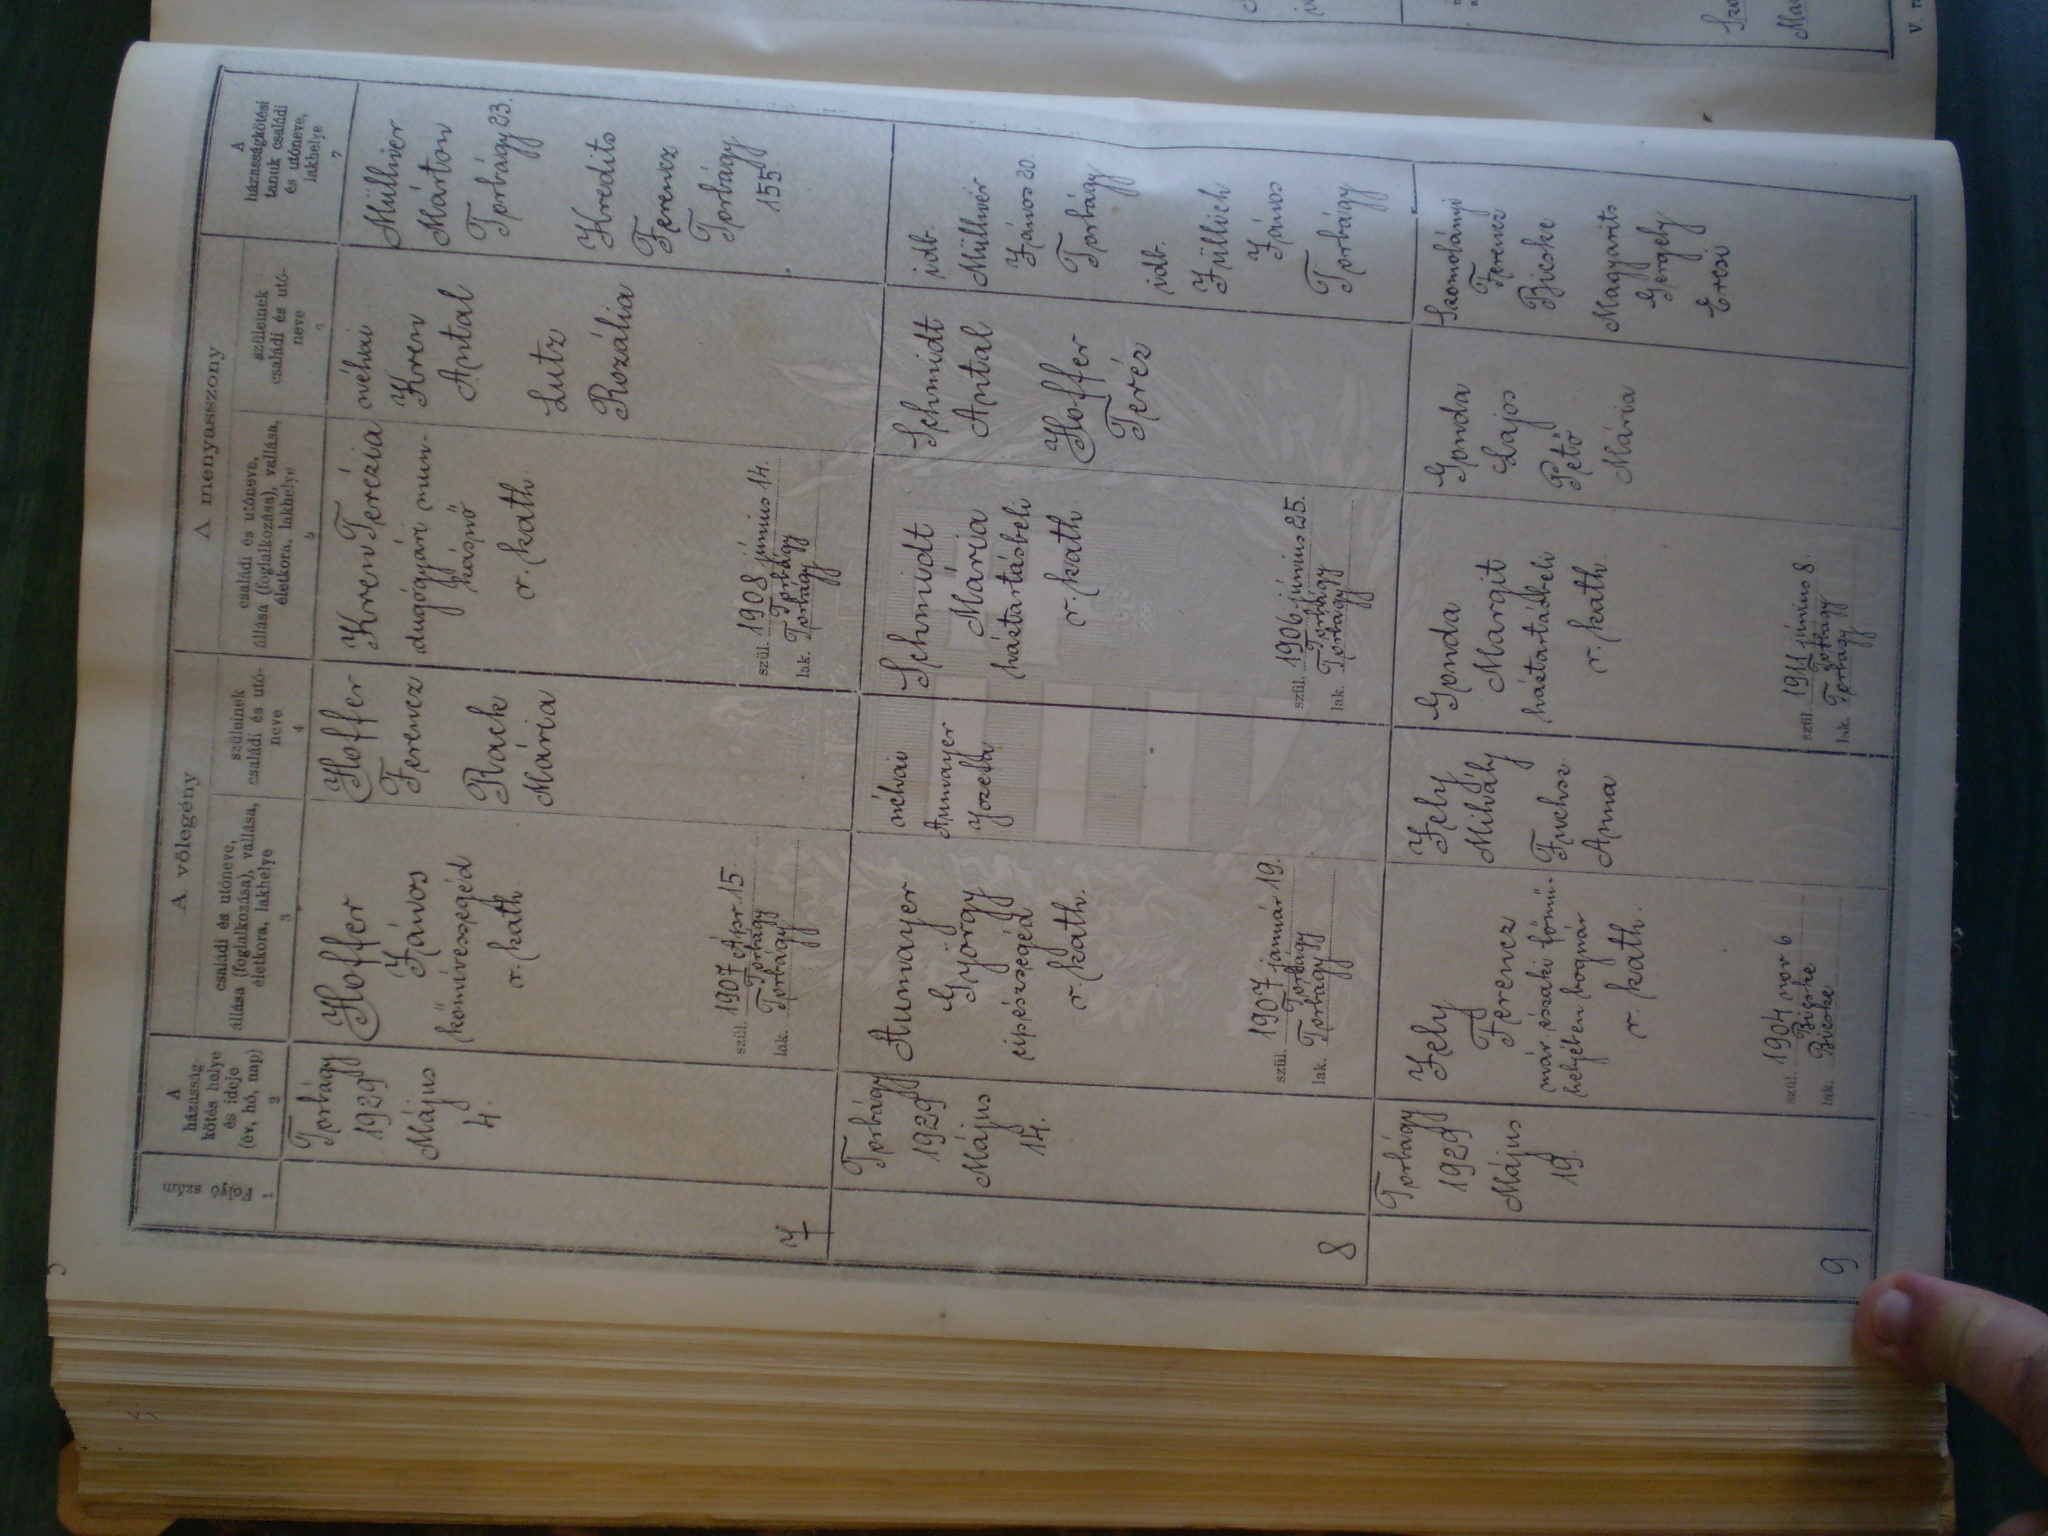 A házasság-
kötés helye
és ideje
(év, hó, nap)
2
A vőlegény
családi és utóneve,
állása (foglalkozása), vallása,
életkora, lakhelye
3
szüleinek
családi és utó-
neve
4
A menyasszony
családi és utóneve,
állása (foglalkozása), vallása,
életkora, lakhelye
5
szüleinek
családi és utó-
neve
A
házasságkötési
tanuk családi
és utóneve,
lakhelye
7
Folyó szám
1
7
Torbágy
1929
Május
4.
Hoffer
János
kőművessegéd
r. kath.
szül. 1907 Ápr. 15.
Torbágy
lak. Torbágy
Hoffer
Ferencz
Rack
Mária
Kren Terézia
dugógyári mun-
kásnő
r. kath
szül. 1908 június 14.
Torbágy
lak. Torbágy
néhai
Kren
Antal
Lutz
Rozália
Müllner
Márton
Torbágy 23.
Kredits
Ferencz
Torbágy
155.
8
Torbágy
1929
Május
14.
Aumayer
György
cipészsegéd
r. kath.
szül. 1907 január 19.
Torbágy
lak. Torbágy
néhai
Aumayer
Jozefa
Schmidt
Mária
háztartásbeli
r. kath
szül. 1906 június 25.
Torbágy
lak. Torbágy
Schmidt
Antal
Hoffer
Teréz
idb.
Müllner
János 20.
Torbágy
idb.
Züllich
János
Torbágy
9
Torbágy
1929
Május
19.
Zely
Ferencz
már. éjszaki főmű-
helyében bognár
r. kath.
szül. 1904 nov. 6
Bicske
lak. Bicske
Zely
Mihály
Fuchsz
Anna
Gonda
Margit
háztartásbeli
r. kath.
szül. 1911 június 8.
Torbágy
lak. Torbágy
Gonda
Lajos
Pető
Mária
Szomolányi
Ferencz
Bicske
Magyarits
Gergely
Ercsi